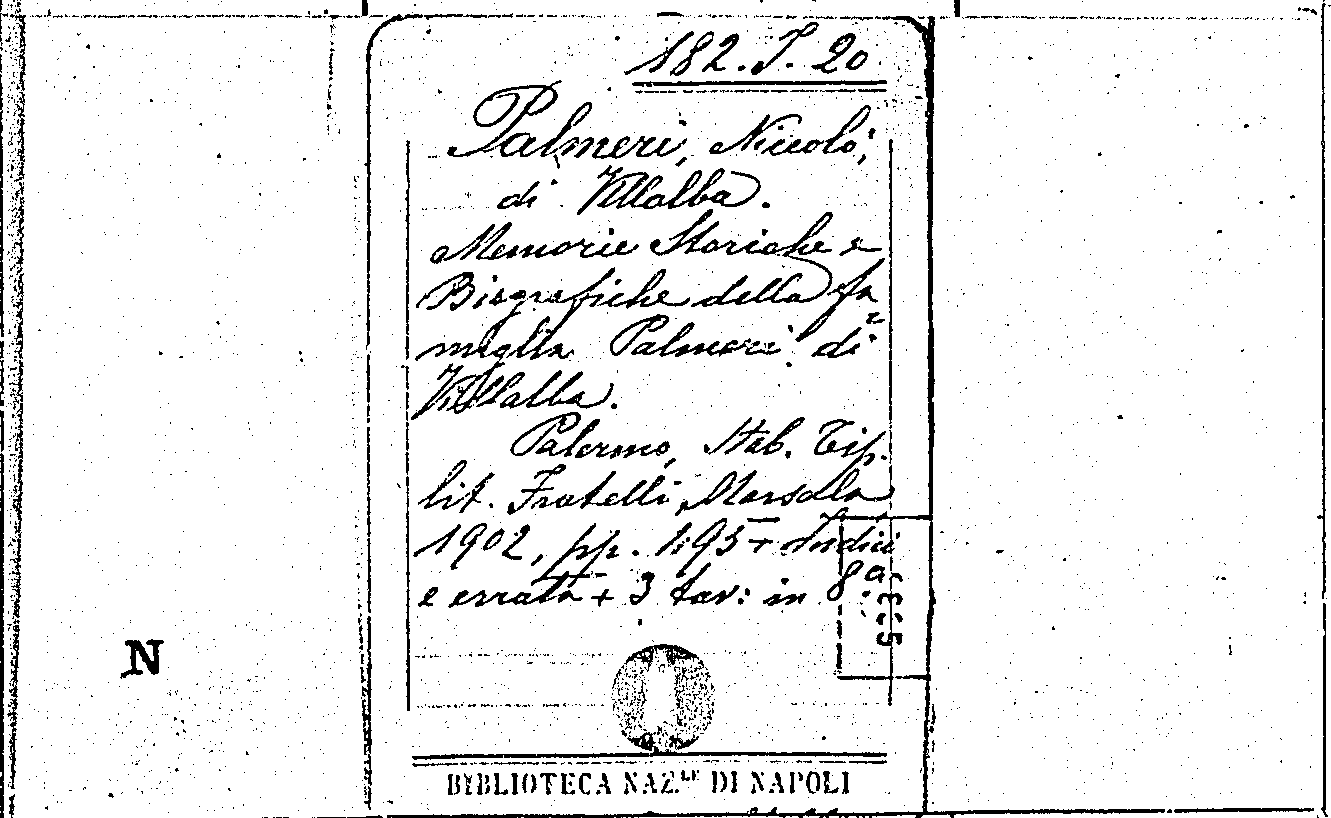 182. J. 20
Palmeri, Niccolò,
di Villalba.
Memorie Storiche e
Biografiche della fa
miglia Palmeri di
Villalba.
Palermo, Stab. Tip.
lit. Fratelli Marsala
1902, pp. 195 + Indici
e errata + 3 tav: in 8º
N
BIBLIOTECA NAZ.LE DI NAPOLI